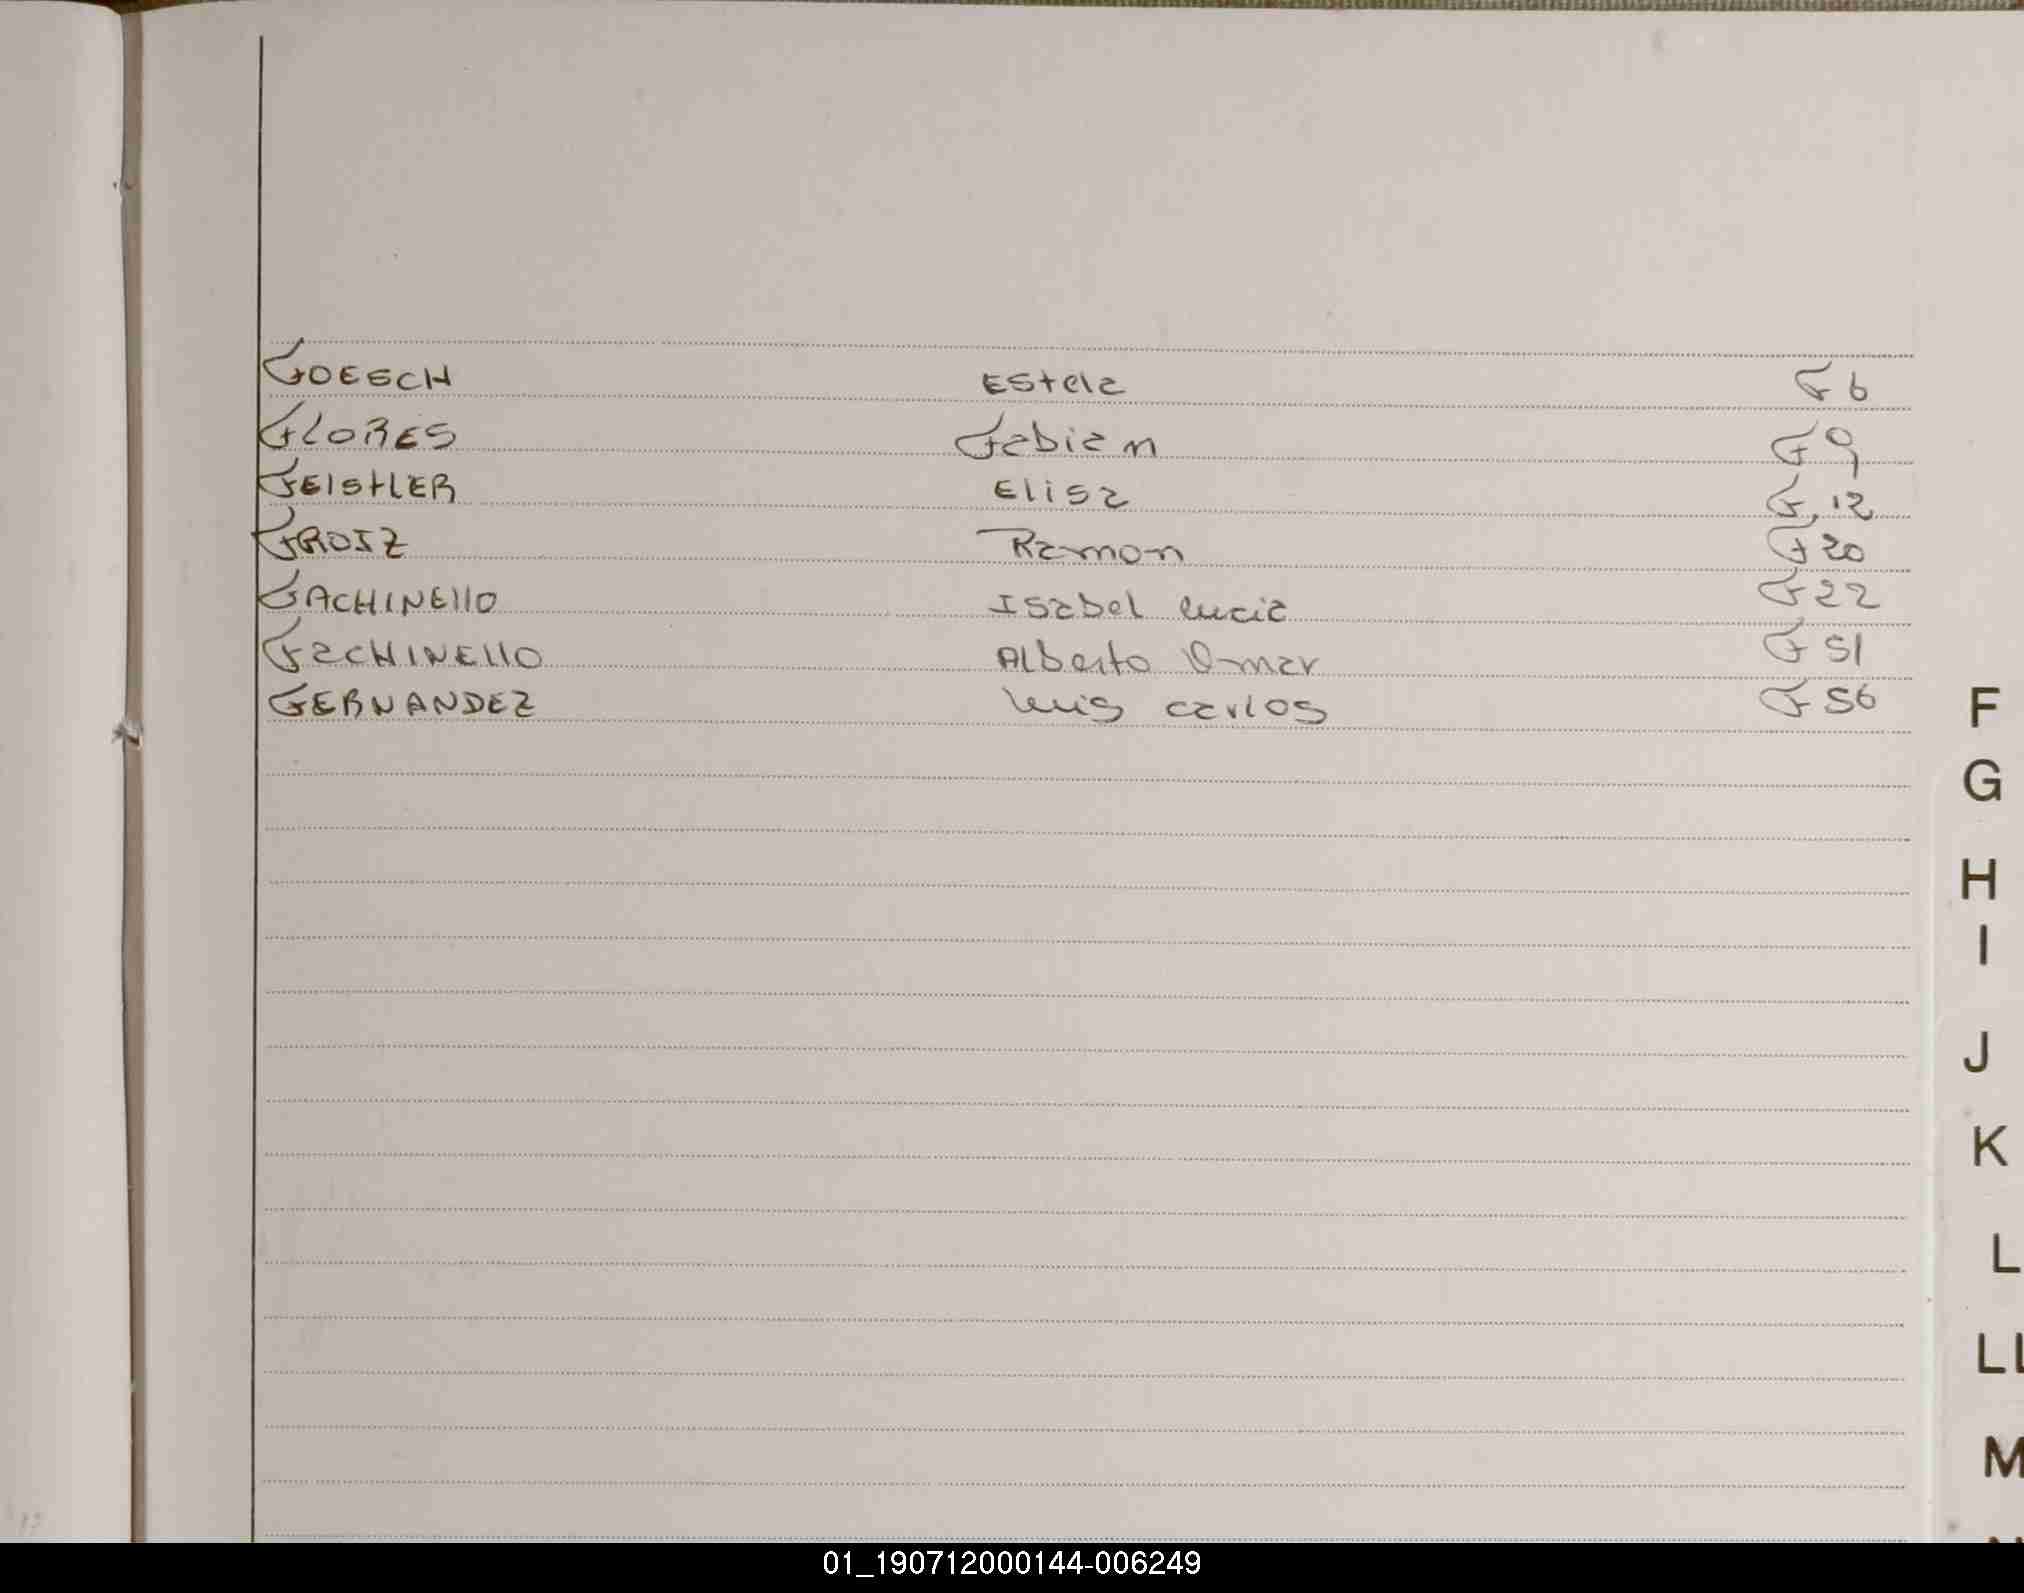 FOESCH Estela F 6
FLORES Fabian F 9
FEISTLER Elisa F. 12
FROIZ Ramon F 20
FACHINELLO Isabel Lucia F 22
FaCHINELLO Alberto Omar F 51
FERNANDEZ Luis Carlos F 56
F
G
H
I
J
K
L
LL
M
01_190712000144-006249